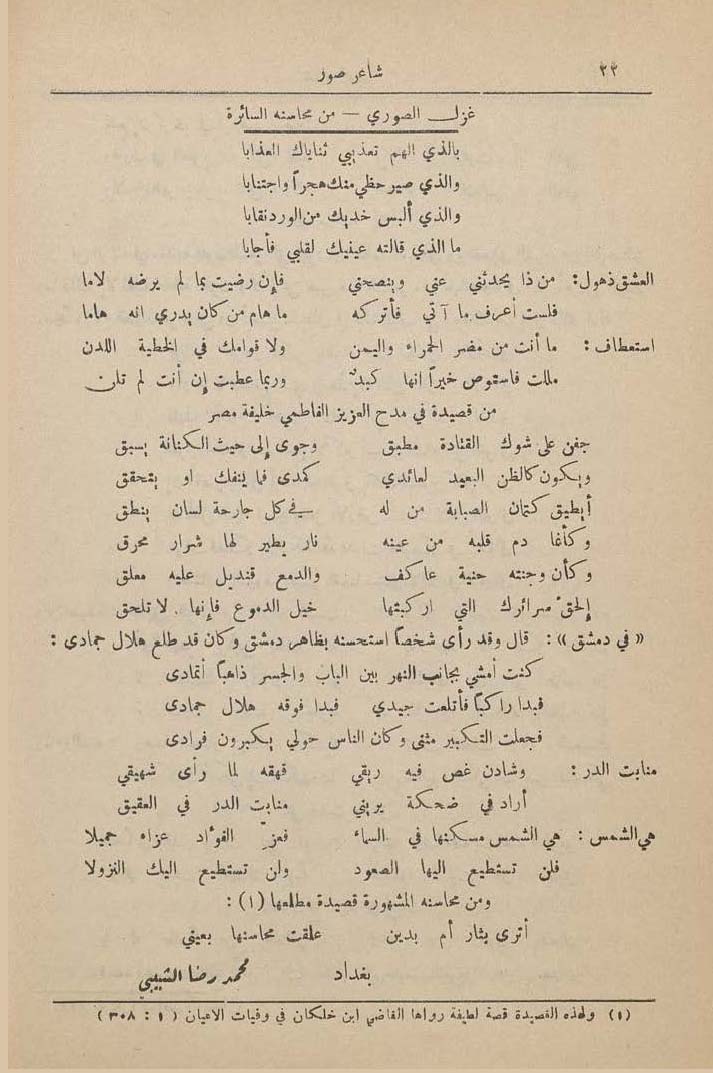 ٢٢ شاعر صور
غزل الصوري — من محاسنه السائرة
بالذي الهم تعذيبي ثناياك العذابا
والذي صير حظي منك هجراً واجتنابا
والذي ألبس خديك من الورد نقابا
ما الذي قالته عينيك لقلبي فأجابا
العشق ذهول : من ذا يحدثني عني وينصحني فإن رضيت بما لم يرضه لاما
فلست أعرف ما آتي فأتركه ما هام من كان يدري انه هاما
استعطاف : ما أنت من مضر الحمراء واليمن ولا قوامك في الخطية اللدن
مللت فاستوص خيراً انها كبد وربما عطبت إن أنت لم تلن
من قصيدة في مدح العزيز الفاطمي خليفة مصر
جفن على شوك القتادة مطبق وجوى إلى حيث الكنانة يسبق
ويكون كالظن البعيد لعائدي كمدى فما ينفك او يتحقق
أيطيق كتمان الصبابة من له في كل جارحة لسان ينطق
وكأنما دم قلبه من عينه نار يطير لها شرار محرق
وكأن وجنته حنية عاكف والدمع قنديل عليه معلق
إلحق سرائرك التي اركبتها خيل الدموع فإنها لا تلحق
« في دمشق » : قال وقد رأى شخصاً استحسنه بظاهر دمشق وكان قد طلع هلال جمادى :
كنت أمشي بجانب النهر بين الباب والجسر ذاهباً أتمادى
فبدا راكباً فأتلعت جيدي فبدا فوقه هلال جمادى
فجعلت التكبير مثنى وكان الناس حولي يكبرون فرادى
منابت الدر : وشادن غص فيه ريقي قهقه لما رأى شهيقي
أراد في ضحكة يريني منابت الدر في العقيق
هي الشمس : هي الشمس مسكنها في السماء فعزِّ الفؤاد عزاء جميلا
فلن تستطيع اليها الصعود ولن تستطيع اليك النزولا
ومن محاسنه المشهورة قصيدة مطلعها (١) :
أترى بثار أم بدين علقت محاسنها بعيني
بغداد محمد رضا الشبيبي
(١) ولهذه القصيدة قصة لطيفة رواها القاضي ابن خلكان في وفيات الاعيان ( ١ : ٣٠٨ )